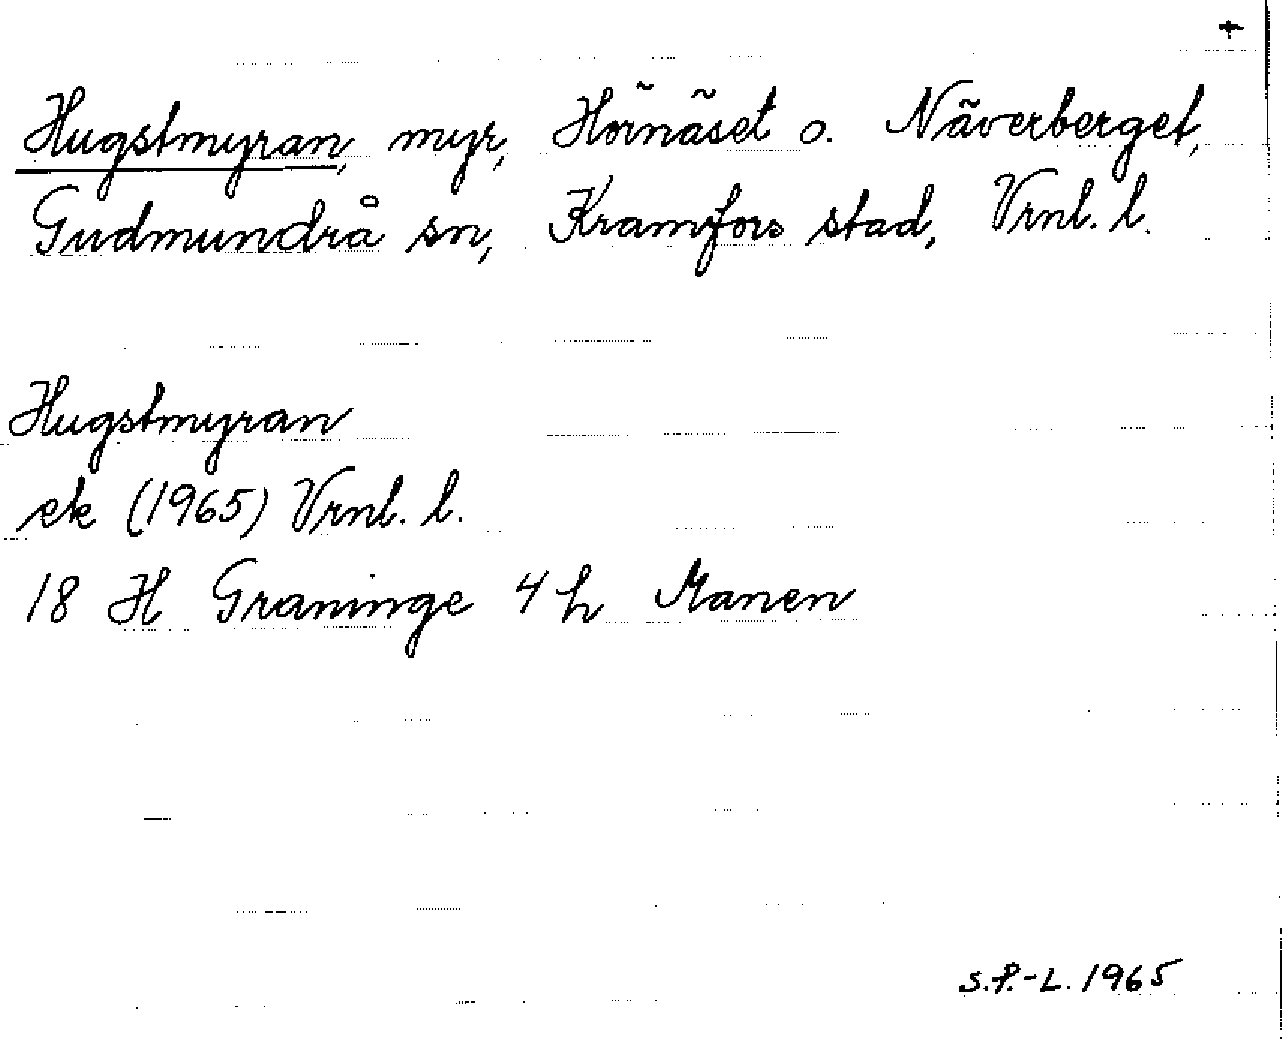 +
Hugstmyran, myr, Hörnäset o. Näverberget,
Gudmundrå sn, Kramfors stad, Vrnl. l.
Hugstmyran
ek (1965) Vrnl. l.
18 H Graninge 4 h Manen
S.P.-L. 1965